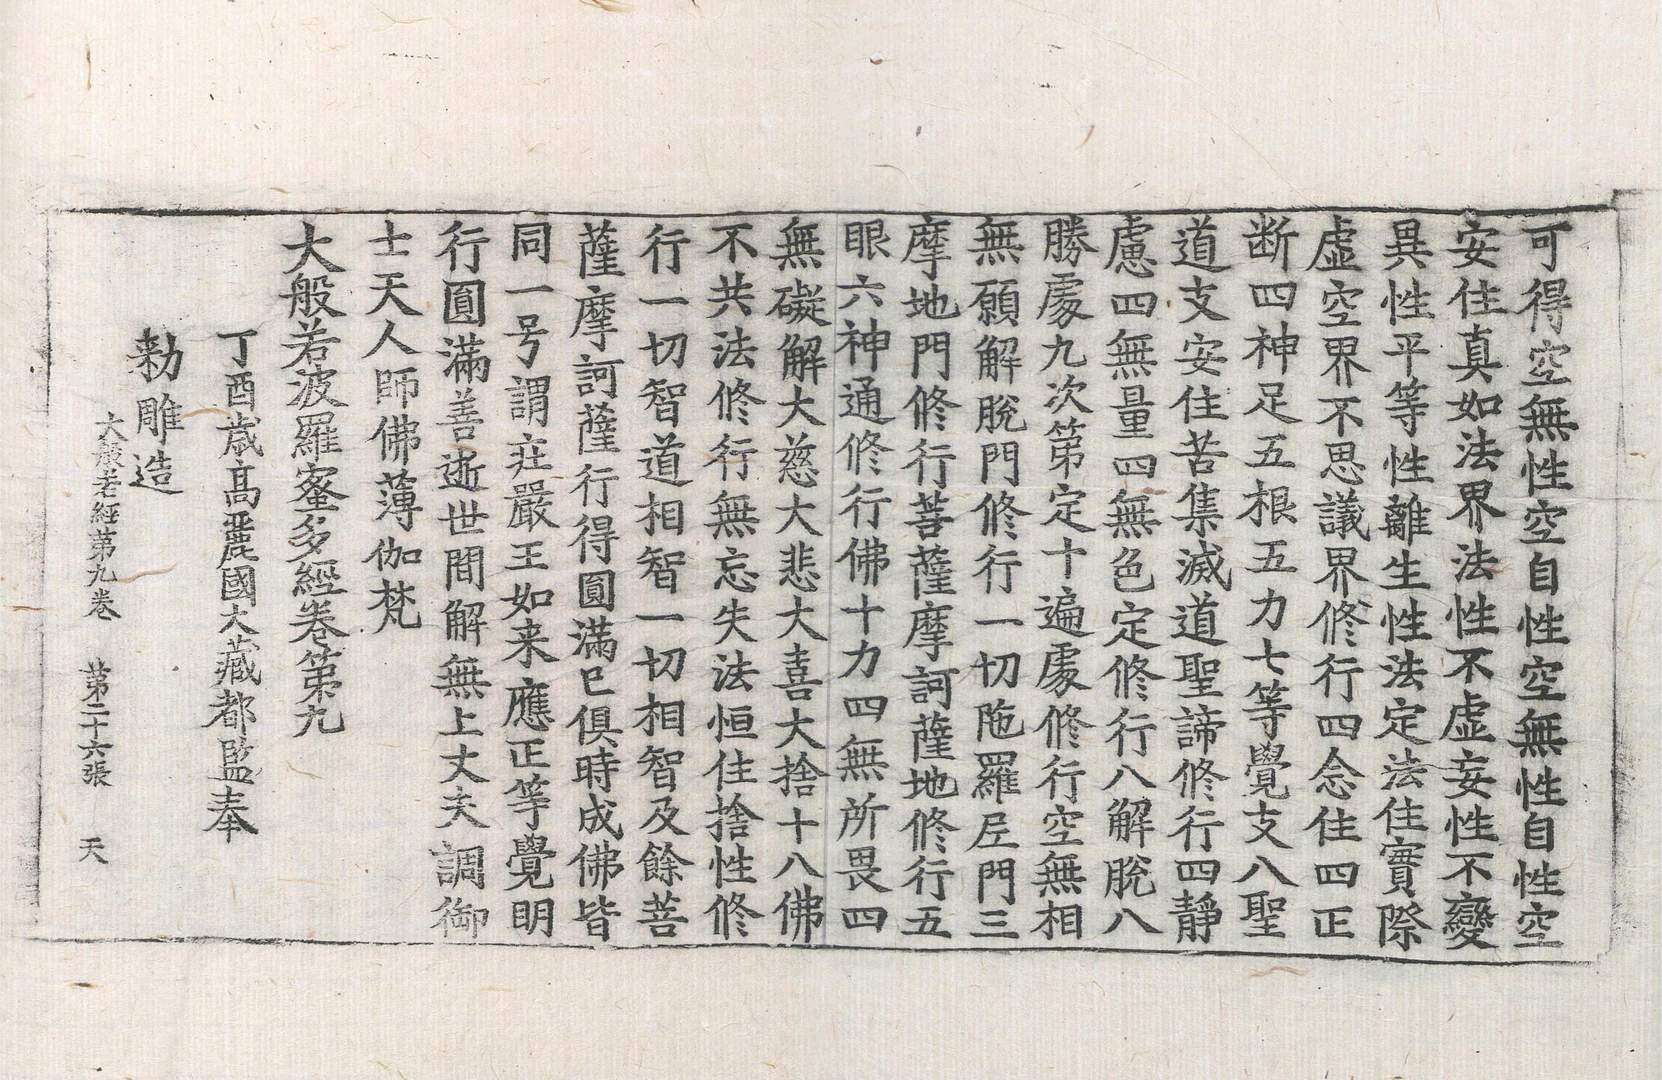 可得空無性空自性空無性自性空
安住真如法界法性不虛妄性不變
異性平等性離生性法定法住實際
虛空界不思議界修行四念住四正
断四神足五根五力七等覺支八聖
道支安住苦集滅道聖諦修行四靜
慮四無量四無色定修行八解脫八
勝處九次第定十遍處修行空無相
無願解脫門修行一切陁羅尼門三
摩地門修行菩薩摩訶薩地修行五
眼六神通修行佛十力四無所畏四
無礙解大慈大悲大喜大捨十八佛
不共法修行無忘失法恒住捨性修
行一切智道相智一切相智及餘菩
薩摩訶薩行得圓滿已俱時成佛皆
同一号謂莊嚴王如来應正等覺明
行圓滿善逝世間解無上丈夫調御
士天人師佛薄伽梵
大般若波羅蜜多經卷第九
丁酉歲高麗國大藏都監奉
勑雕造
大般若經第九卷 第二十六張 天